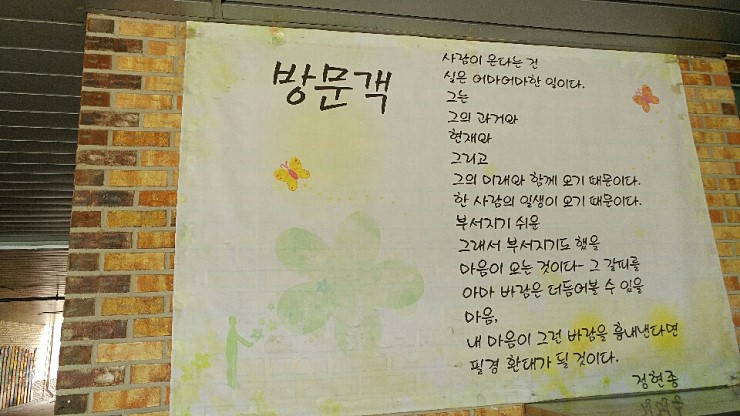 방문객
사람이 온다는 건
실은 어마어마한 일이다.
그는
그의 과거와
현재와
그리고
그의 미래와 함께 오기 때문이다.
한 사람의 일생이 오기 때문이다.
부서지기 쉬운
그래서 부서지기도 했을
마음이 오는 것이다- 그 갈피를
아마 바람은 더듬어볼 수 있을
마음,
내 마음이 그런 바람을 흉내낸다면
필경 환대가 될 것이다.
정현종